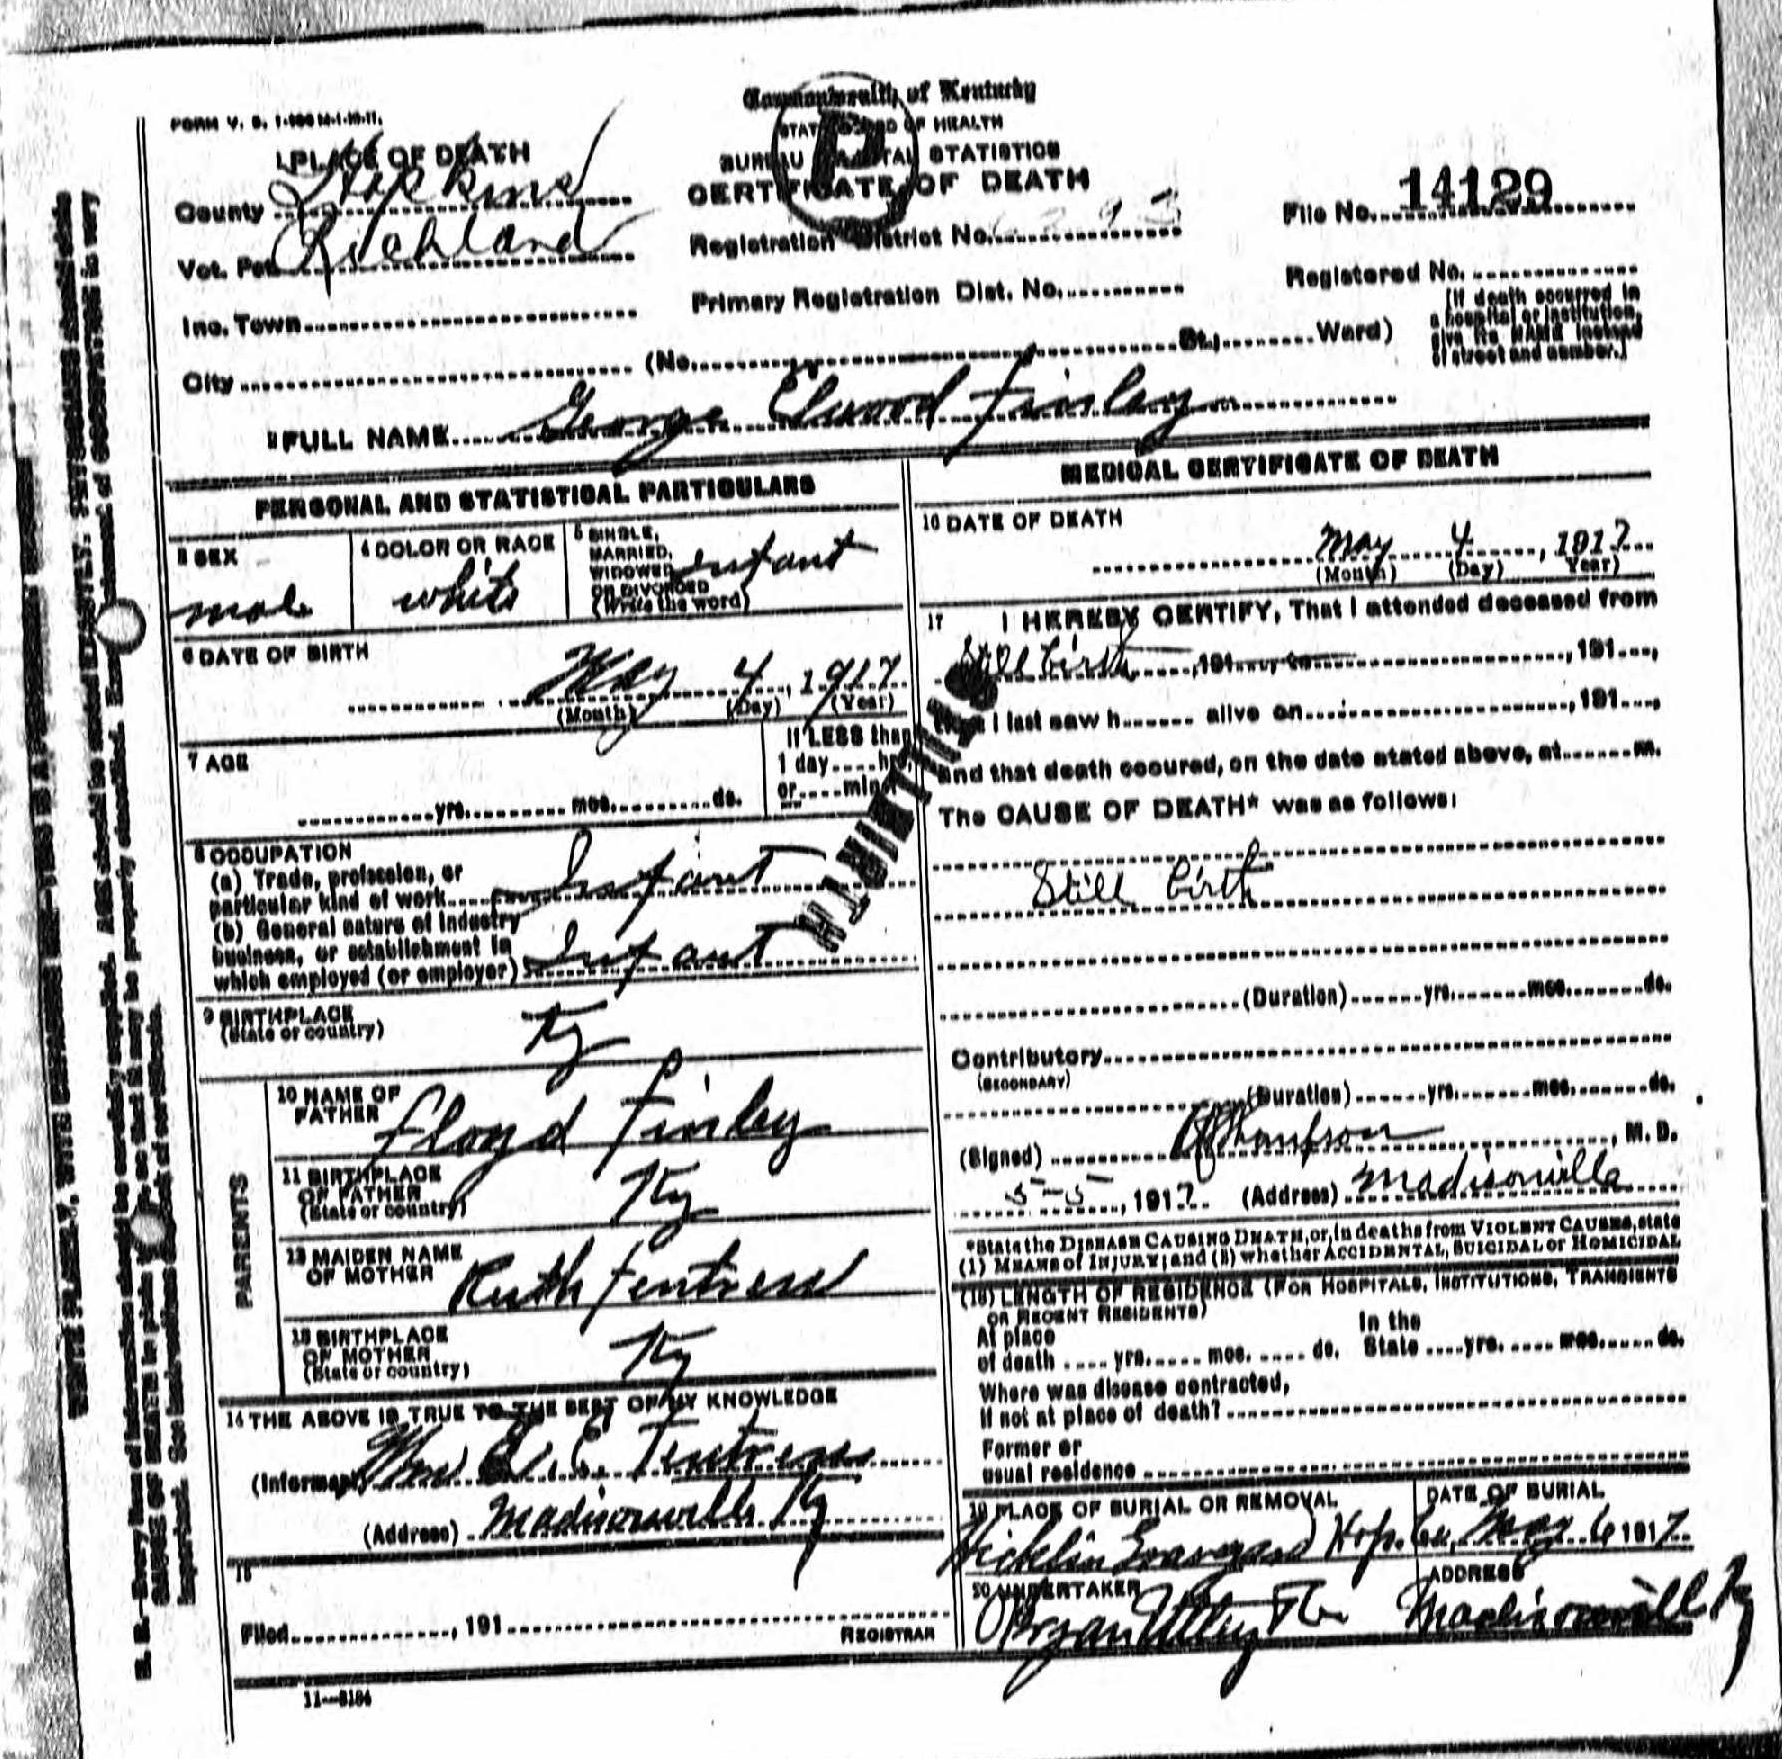 Commonwealth of Kentucky
STATE BOARD OF HEALTH
BUREAU OF VITAL STATISTICS
CERTIFICATE OF DEATH
FORM V. S.
1 PLACE OF DEATH
County Hopkins
Vot. Pct. Richland
Inc. Town
City
Registration District No.
Primary Registration Dist. No.
(No. St.; Ward)
File No. 14129
Registered No.
[If death occurred in
a hospital or institution,
give its NAME instead
of street and number.]
2 FULL NAME George Elwood Finley
PERSONAL AND STATISTICAL PARTICULARS
3 SEX
male
4 COLOR OR RACE
white
5 SINGLE,
MARRIED,
WIDOWED
OR DIVORCED
(Write the word)
infant
6 DATE OF BIRTH
May 4, 1917
(Month) (Day) (Year)
7 AGE
yrs. mos. ds.
If LESS than
1 day hrs.
or min.
8 OCCUPATION
(a) Trade, profession, or
particular kind of work Infant
(b) General nature of industry
business, or establishment in
which employed (or employer) Infant
9 BIRTHPLACE
(State or country)
Ky
PARENTS
10 NAME OF
FATHER
Floyd Finley
11 BIRTHPLACE
OF FATHER
(State or country)
Ky
12 MAIDEN NAME
OF MOTHER
Ruth Fentress
13 BIRTHPLACE
OF MOTHER
(State or country)
Ky
14 THE ABOVE IS TRUE TO THE BEST OF MY KNOWLEDGE
(Informant) Fentress
(Address) Madisonville Ky
15
Filed , 191
REGISTRAR
11—3184
STILLBIRTH
MEDICAL CERTIFICATE OF DEATH
16 DATE OF DEATH
May 4, 1917
(Month) (Day) Year)
17 I HEREBY CERTIFY, That I attended deceased from
Still birth, 191 , to , 191 ,
that I last saw h alive on , 191 ,
and that death occured, on the date stated above, at m.
The CAUSE OF DEATH* was as follows:
Still birth
(Duration) yrs. mos. ds.
Contributory
(SECONDARY)
(Duration) yrs. mos. ds.
(Signed) Thompson, M. D.
5-5, 1917. (Address) Madisonville
*State the DISEASE CAUSING DEATH, or, in deaths from VIOLENT CAUSES, state
(1) MEANS OF INJURY; and (2) whether ACCIDENTAL, SUICIDAL or HOMICIDAL
(18) LENGTH OF RESIDENCE (FOR HOSPITALS, INSTITUTIONS, TRANSIENTS
OR RECENT RESIDENTS)
At place
of death yrs. mos. ds.
In the
State yrs. mos. ds.
Where was disease contracted,
if not at place of death?
Former or
usual residence
19 PLACE OF BURIAL OR REMOVAL
Hicklin Graveyard Hop. Co.
DATE OF BURIAL
May 6 1917
20 UNDERTAKER
Bryan Utley
ADDRESS
Madisonville Ky